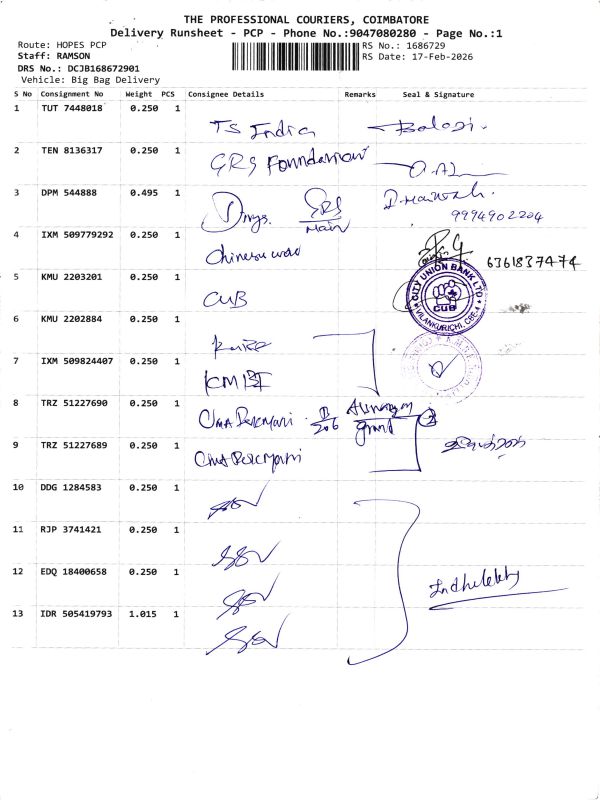 THE PROFESSIONAL COURIERS, COIMBATORE
Delivery Runsheet - PCP - Phone No.:9047080280 - Page No.:1
Route: HOPES PCP
Staff: RAMSON
DRS No.: DCJB168672901
Vehicle: Big Bag Delivery
RS No.: 1686729
RS Date: 17-Feb-2026
S No Consignment No Weight PCS Consignee Details Remarks Seal & Signature
1 TUT 7448018 0.250 1
TS India Balaji.
2 TEN 8136317 0.250 1
GRS Foundation
3 DPM 544888 0.495 1
SRS
Main
9994902204
4 IXM 509779292 0.250 1
6361837474
5 KMU 2203201 0.250 1
CUB
CITY UNION BANK LTD
CUB
VILANKURICHI, CBE
6 KMU 2202884 0.250 1
7 IXM 509824407 0.250 1
8 TRZ 51227690 0.250 1
B/206
grand
2
9 TRZ 51227689 0.250 1
10 DDG 1284583 0.250 1
11 RJP 3741421 0.250 1
12 EDQ 18400658 0.250 1
13 IDR 505419793 1.015 1